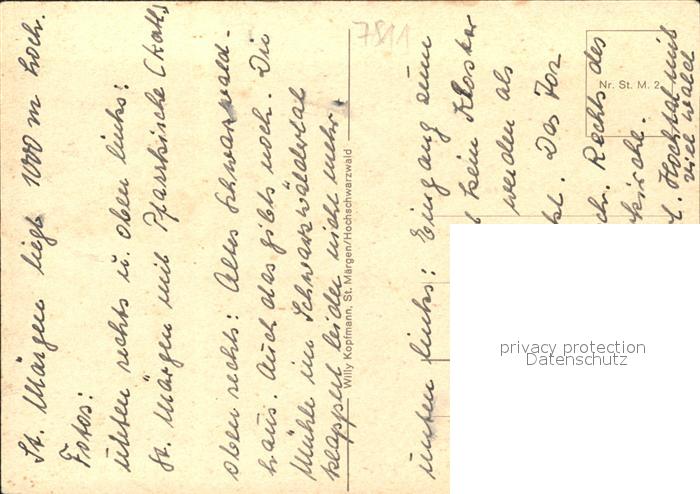 St. Märgen liegt 1000 m hoch.
Fotos:
unten rechts u. oben links:
St. Märgen mit Pfarrkirche (Kath.)
oben rechts: Altes Schwarzwald-
haus. Auch das gibts noch. Die
Mühle im Schwarzwäldertal
klappert leider nicht mehr.
Willy Kopfmann, St. Märgen/Hochschwarzwald
7811
Nr. St. M. 2
unten links: Eingang zum
kein Kloster
werden als
Das Tor
Rechts des
kirche.
Hochtal mit
viel Wald
privacy protection
Datenschutz